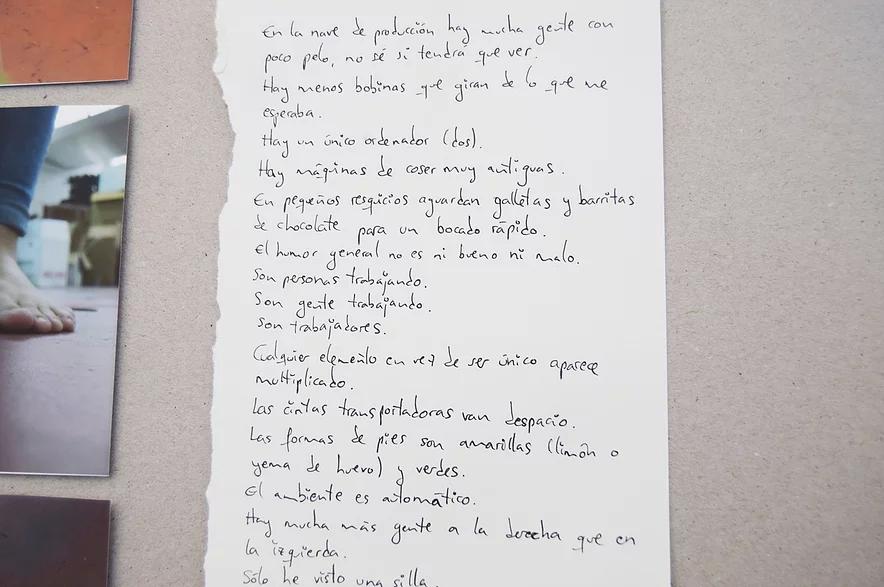 En la nave de producción hay mucha gente con
poco pelo, no sé si tendrá que ver.
Hay menos bobinas que giran de lo que me
esperaba.
Hay un único ordenador (dos).
Hay máquinas de coser muy antiguas.
En pequeños resquicios aguardan galletas y barritas
de chocolate para un bocado rápido.
El humor general no es ni bueno ni malo.
Son personas trabajando.
Son gente trabajando.
Son trabajadores.
Cualquier elemento en vez de ser único aparece
multiplicado.
Las cintas transportadoras van despacio.
Las formas de pies son amarillas (limón o
yema de huevo) y verdes.
El ambiente es automático.
Hay mucha más gente a la derecha que en
la izquierda.
Sólo he visto una silla.